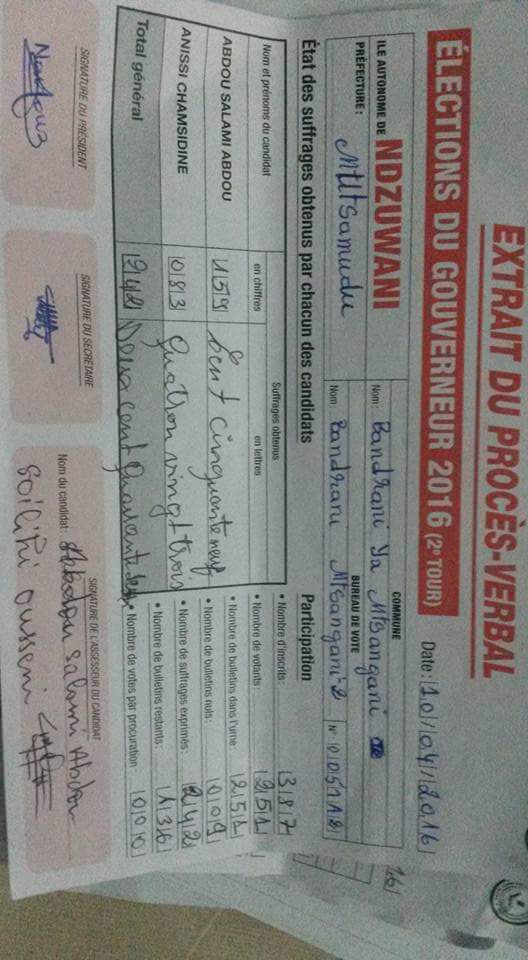 EXTRAIT DU PROCÈS-VERBAL
ÉLECTIONS DU GOUVERNEUR 2016 (2e TOUR)
Date: 10/04/2016
ILE AUTONOME DE NDZUWANI
PRÉFECTURE: Mutsamudu
COMMUNE
Nom: Bandrani Ya Mtsangani
BUREAU DE VOTE
Nom: Bandrani Mtsangani 2
N°:
État des suffrages obtenus par chacun des candidats
Nom et prénoms du candidat
Suffrages obtenus
en chiffres
en lettres
ABDOU SALAMI ABDOU 159 Cent cinquante neuf
ANISSI CHAMSIDINE 083 quatre vingt trois
Total général 242 Deux cent quarante deux
Participation
• Nombre d'inscrits: 387
• Nombre de votants: 251
• Nombre de bulletins dans l'urne: 251
• Nombre de bulletins nuls: 009
• Nombre de suffrages exprimés: 242
• Nombre de bulletins restants: 136
• Nombre de votes par procuration: 000
SIGNATURE DU PRÉSIDENT
SIGNATURE DU SECRÉTAIRE
SIGNATURE DE L'ASSESSEUR DU CANDIDAT
Nom du candidat: Abdou Salami Abdou
Soilihi ousseni